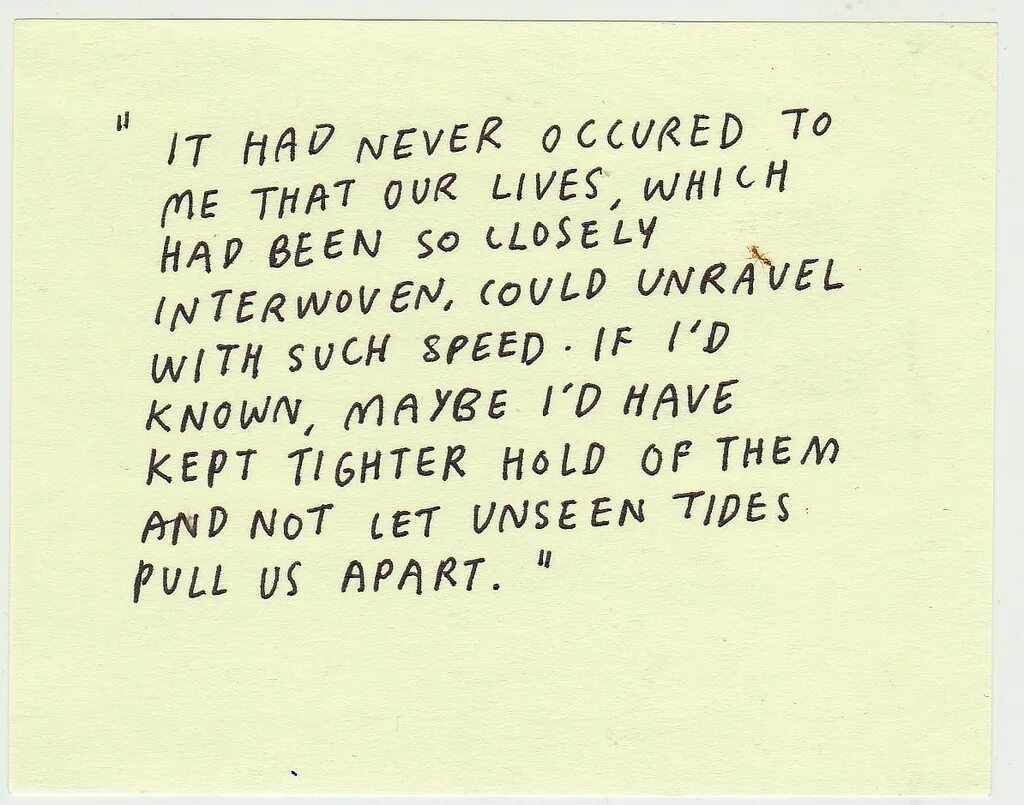 " IT HAD NEVER OCCURED TO
ME THAT OUR LIVES, WHICH
HAD BEEN SO CLOSELY
INTERWOVEN, COULD UNRAVEL
WITH SUCH SPEED. IF I'D
KNOWN, MAYBE I'D HAVE
KEPT TIGHTER HOLD OF THEM
AND NOT LET UNSEEN TIDES
PULL US APART. "